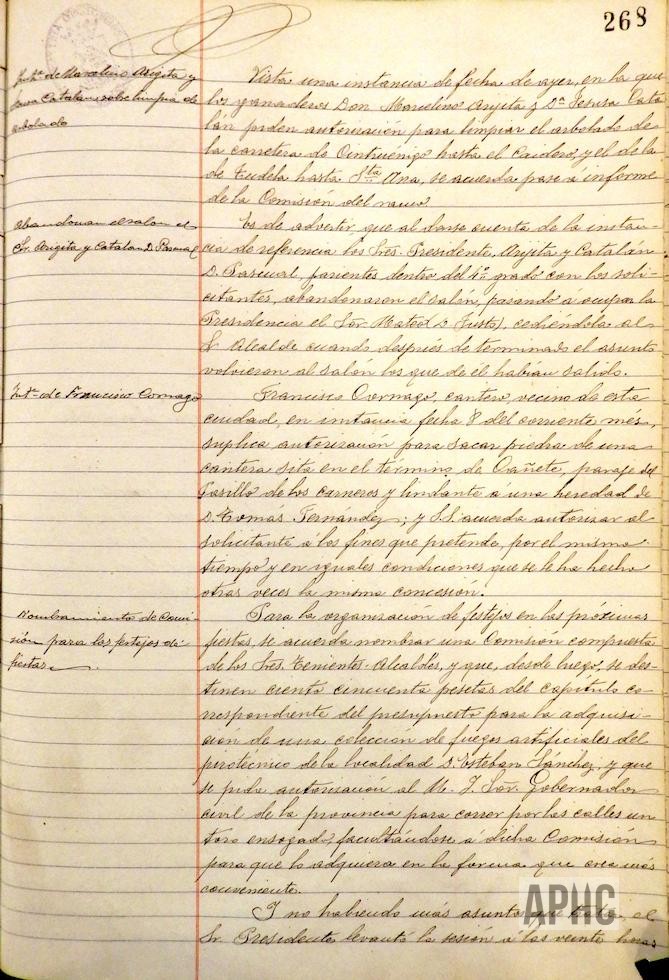 268
Inst.ª de Marcelino Arigita y
Jesusa Catalan, sobre limpia de
arbolado
Vista una instancia de fecha de ayer, en la que
los ganaderos Don Marcelino Arigita y Dª Jesusa Cata
lán piden autorización para limpiar el arbolado de
la carretera de Cintruénigo hasta el Caidero, y el de la
de Tudela hasta Sta Ana, se acuerda pase á informe
de la Comisión del ramo.
Abandonan el salon el
Sr. Arigita y Catalan D. Pascual
Es de advertir, que al darse cuenta de la instan-
cia de referencia los Sres. Presidente, Arigita y Catalán
D. Pascual, parientes dentro del 4º grado con los soli-
citantes, abandonaron el salón, pasando á ocupar la
Presidencia el Sor. Mateo (D. Justo), cediéndola al
Sr. Alcalde cuando después de terminado el asunto
volvieron al salón los que de él habían salido.
Inst.ª de Francisco Cornago
Francisco Cornago, cantero, vecino de esta
ciudad, en instancia fecha 8 del corriente més,
suplica autorización para sacar piedra de una
cantera sita en el término de Cañete, paraje del
Pasillo de los carneros y lindante á una heredad de
D. Tomás Fernández; y S.S. acuerda autorizar al
solicitante á los fines que pretende, por el mismo
tiempo y en iguales condiciones que se le ha hecho
otras veces la misma concesión.
Nombramiento de Comi-
sión para los festejos de
fiestas
Para la organización de festejos en las próximas
fiestas, se acuerda nombrar una Comisión compuesta
de los Sres. Tenientes-Alcaldes, y que, desde luego, se des-
tinen ciento cincuenta pesetas del capítulo co-
rrespondiente del presupuesto para la adquisi-
ción de una colección de fuegos artificiales del
pirotécnico de la localidad D. Esteban Sánchez, y que
se pida autorización al M. I. Sor. Gobernador
civil de la provincia para correr por las calles un
toro ensogado, facultándose á dicha Comisión
para que lo adquiera en la forma que crea más
conveniente.
Y no habiendo más asuntos que tratar, el
Sr. Presidente levantó la sesión á las veinte horas
APHC